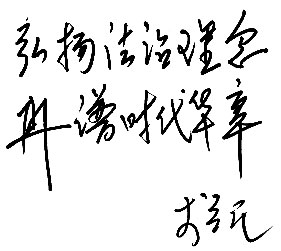 弘扬法治理念
再谱时代华章